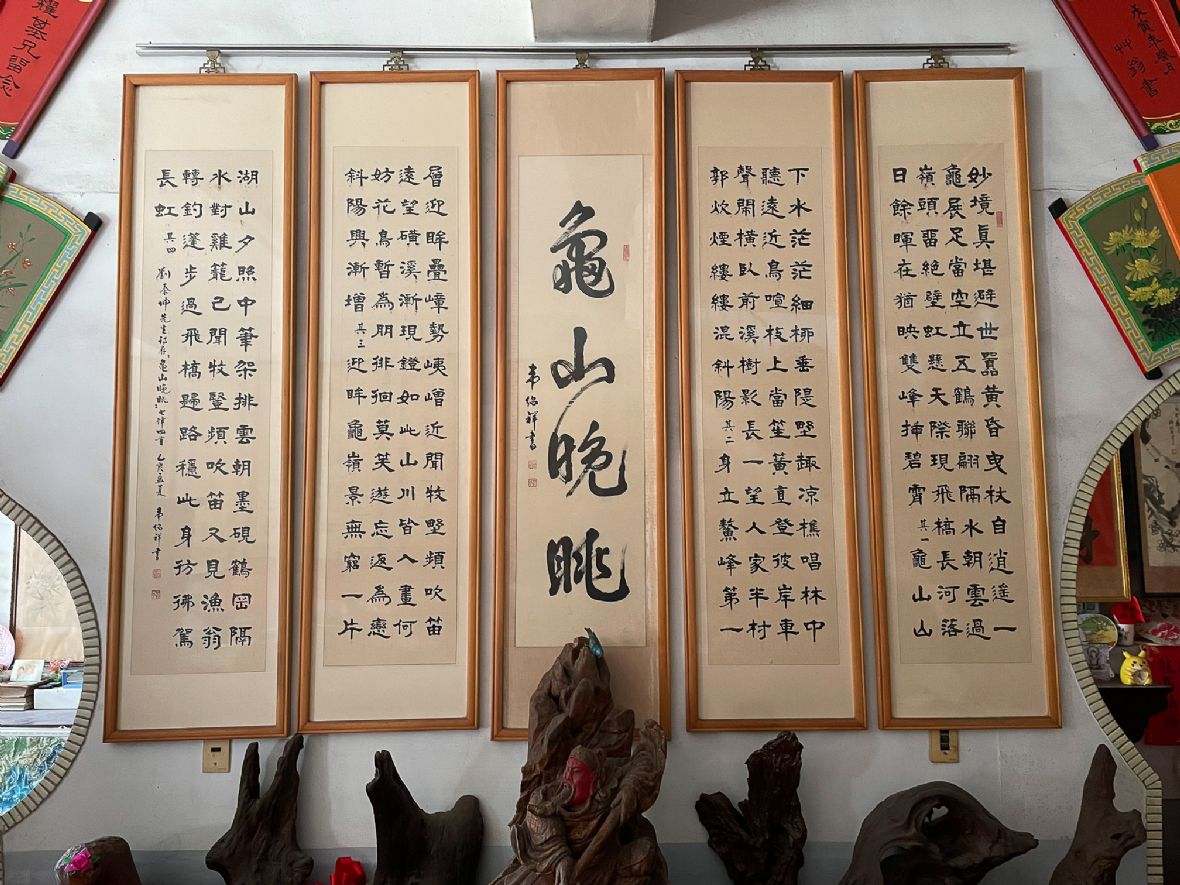 妙境眞堪避世囂黃昏曳杖自逍遙一
龜展足當空立五鶴聯翩隔水朝雲過
嶺頭留絕壁虹懸天際現飛橋長河落
日餘暉在猶映雙峰插碧霄 其一 龜山山
下水茫茫細柳垂隄墅趣凉樵唱林中
聽遠近鳥喧枝上當笙簧直登彼岸車
聲鬧橫臥前溪樹影長一望人家半村
郭炊煙縷縷混斜陽 其二 身立鰲峰第一
龜山晚眺
祥書
層迎眸疊嶂勢嶒近聞牧墅頻吹笛
遠望磺溪漸現鐙如此山川皆入畫何
妨花鳥暫為朋徘徊莫笑遊忘返為戀
斜陽興漸增 其三 迎眸龜嶺景無窮一片
湖山夕照中筆架排雲朝墨硯鶴岡隔
水對雞籠已聞牧豎頻吹笛又見漁翁
轉釣蓬步過飛橋路穩此身彷彿駕
長虹 其四 劉泰坤先生 龜山晚眺七律四首 乙亥孟夏 祥書
耀基兄留念
戊寅 書